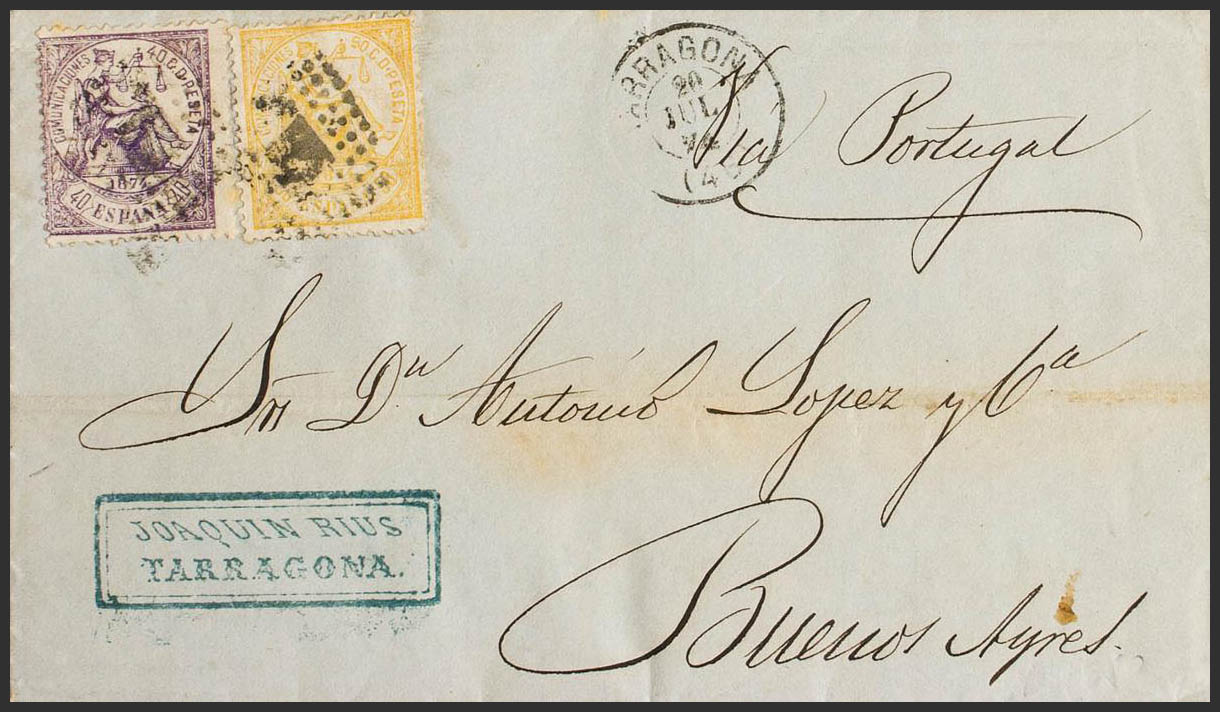 COMUNICACIONES 40 C. D PESETA
1874
40 ESPAÑA 40
COMUNICACIONES 50 C. D PESETA
TARRAGONA
20
JUL.
74
Via Portugal
Sr Dn Antonio Lopez y Cª
JOAQUIN RIUS
TARRAGONA.
Buenos Ayres.